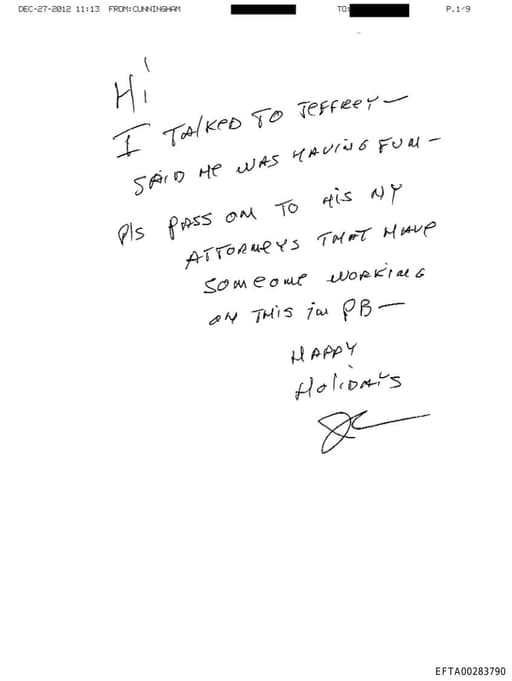 DEC-27-2012 11:13 FROM:CUNNINGHAM TO: P.1/9
Hi
I TALKED TO JEFFREY—
SAID HE WAS HAVING FUN—
Pls PASS ON TO HIS NY
ATTORNEYS THAT HAVE
SOMEONE WORKING
ON THIS IN PB—
HAPPY
HOLIDAYS
JC
EFTA00283790